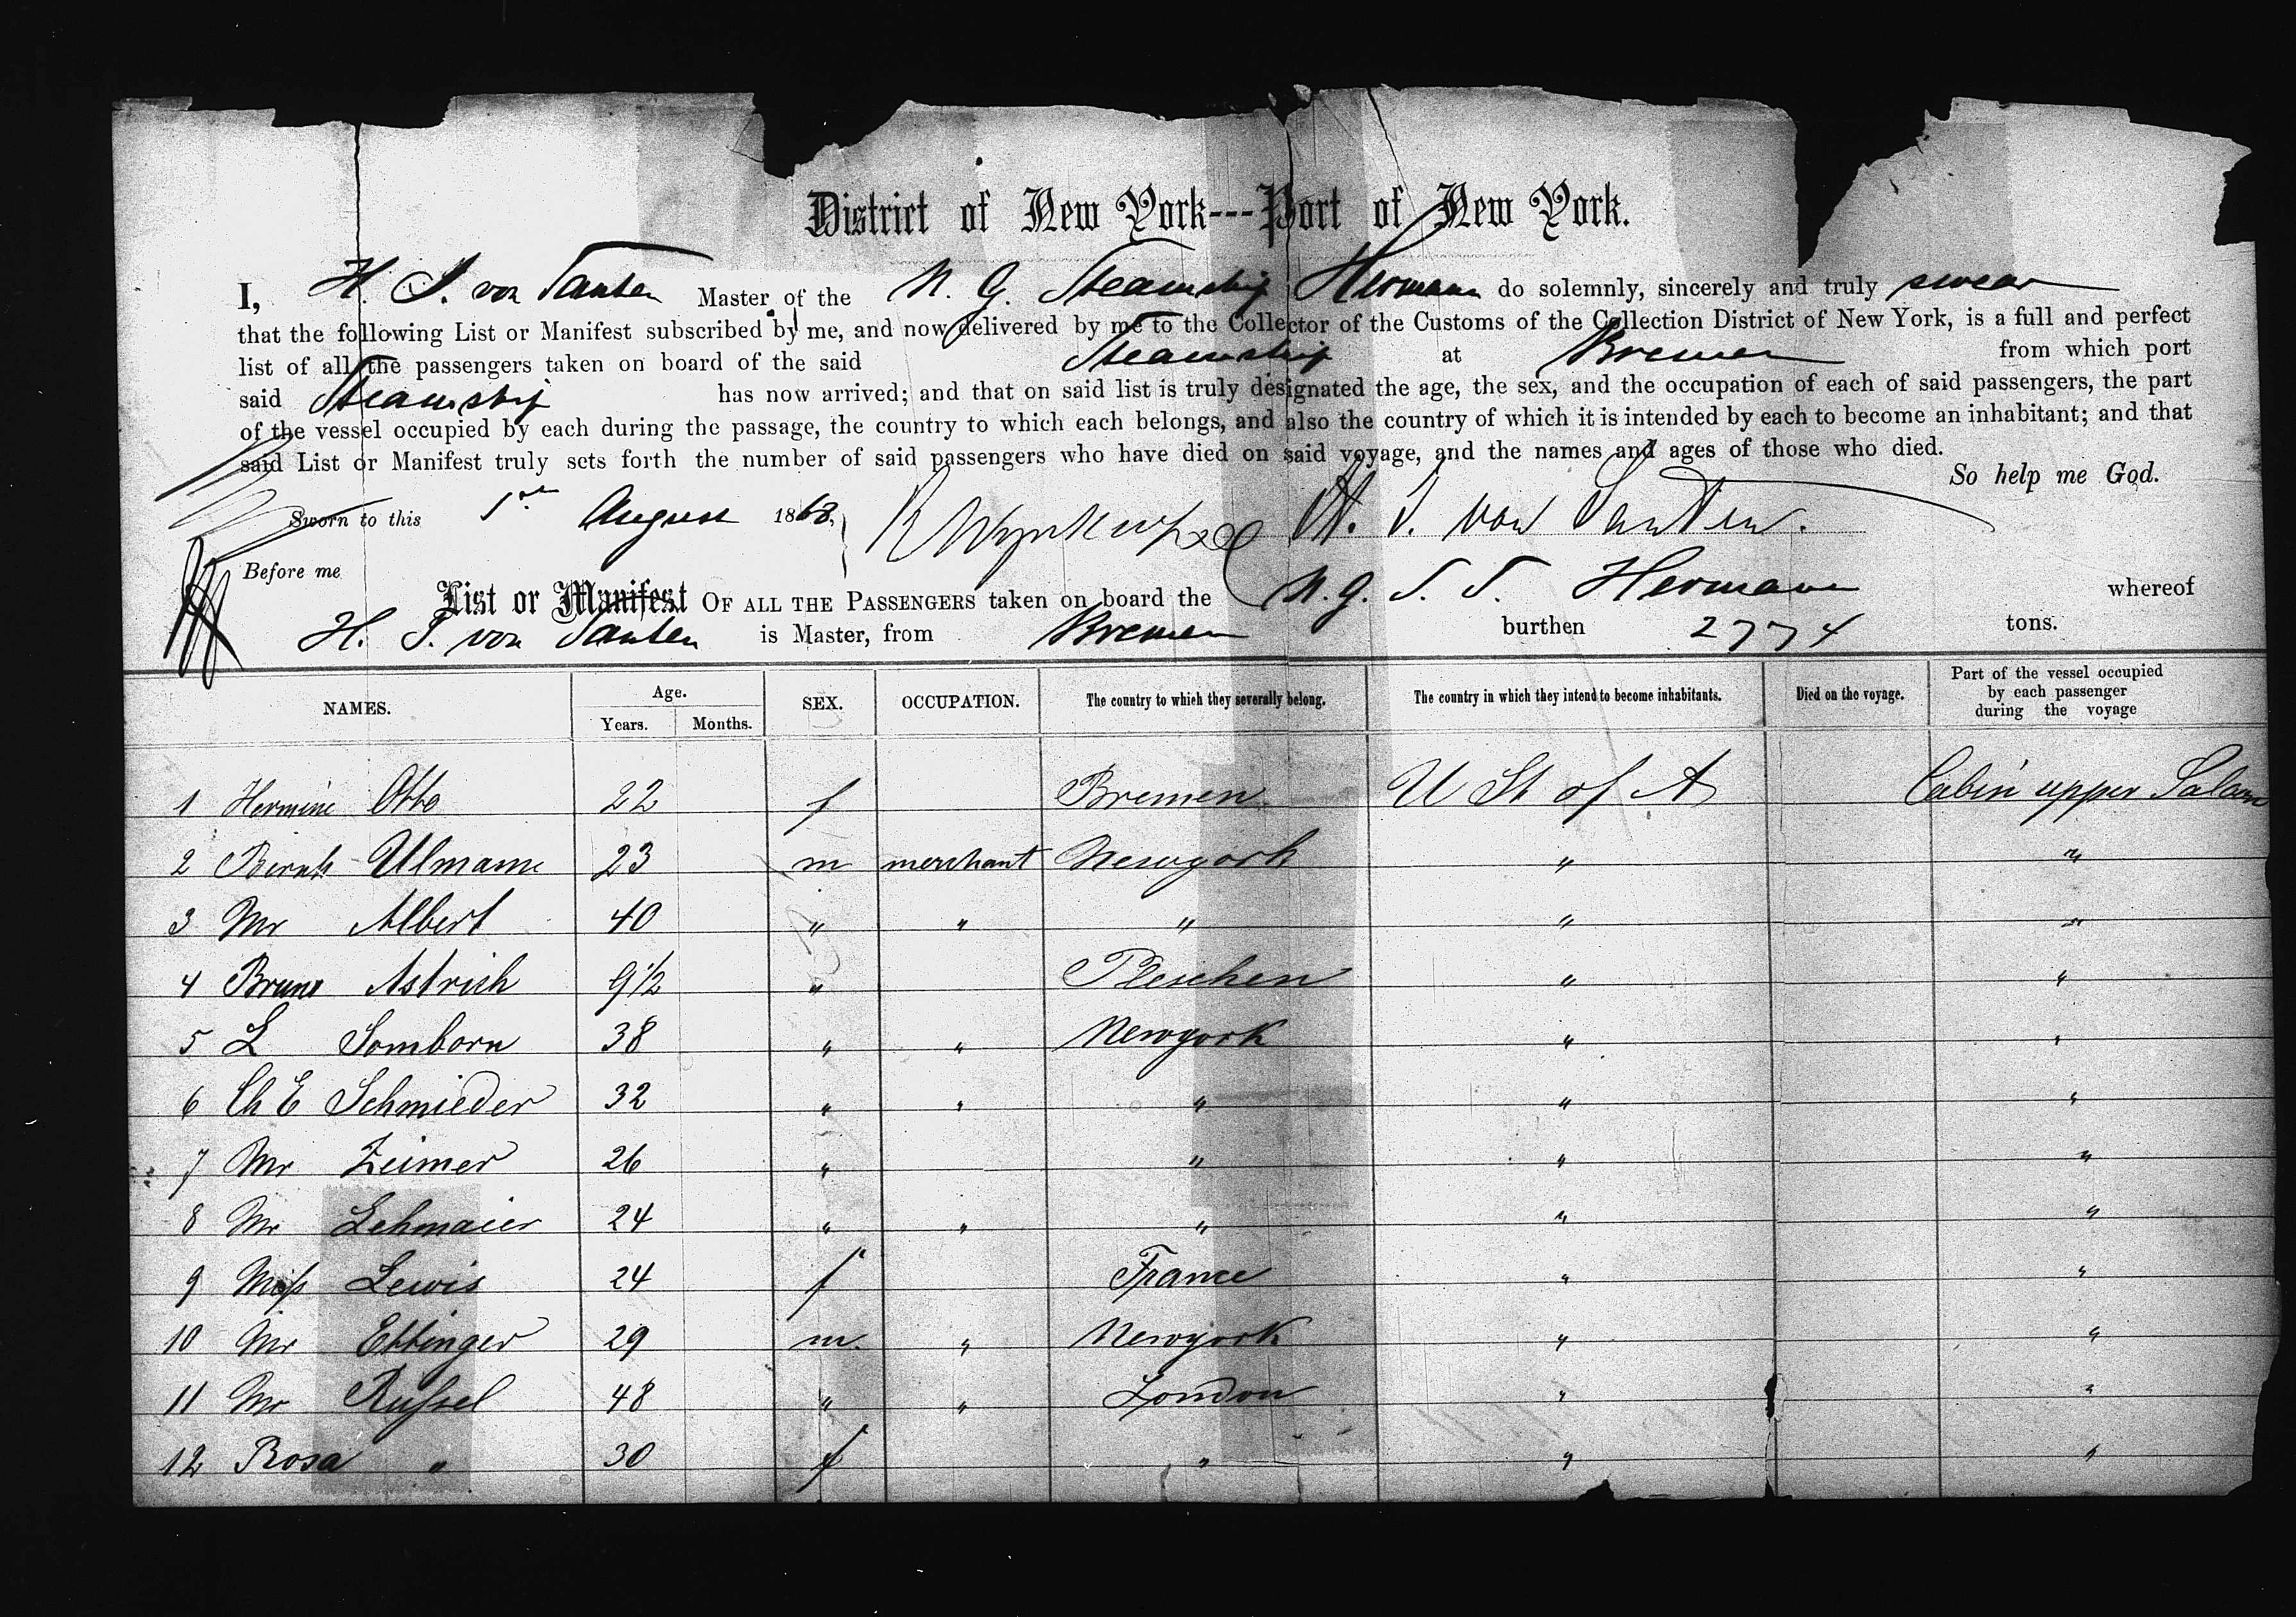 District of New York---Port of New York.
I, H. J. von Santen Master of the N. G. Steamship Hermann do solemnly, sincerely and truly swear
that the following List or Manifest subscribed by me, and now delivered by me to the Collector of the Customs of the Collection District of New York, is a full and perfect
list of all the passengers taken on board of the said Steamship at Bremen from which port
said Steamship has now arrived; and that on said list is truly designated the age, the sex, and the occupation of each of said passengers, the part
of the vessel occupied by each during the passage, the country to which each belongs, and also the country of which it is intended by each to become an inhabitant; and that
said List or Manifest truly sets forth the number of said passengers who have died on said voyage, and the names and ages of those who died.
So help me God.
Sworn to this 1st August 1868, H. J. von Santen.
Before me
List or Manifest OF ALL THE PASSENGERS taken on board the N. G. S. S. Hermann whereof
H. J. von Santen is Master, from Bremen burthen 2774 tons.
NAMES. Age. Years. Months. SEX. OCCUPATION. The country to which they severally belong. The country in which they intend to become inhabitants. Died on the voyage. Part of the vessel occupied by each passenger during the voyage
1 Hermine Otto 22 f Bremen U St of A Cabin upper Saloon
2 Bernh Ulmann 23 m merchant Newyork " "
3 Mr Albert 40 " " " " "
4 Bruno Astrich 9 1/2 " Pleschen " "
5 L Somborn 38 " " Newyork " "
6 Ch E Schmieder 32 " " " " "
7 Mr Zeimer 26 " " " "
8 Mr Lehmaier 24 " " " " "
9 Miss Lewis 24 f France " "
10 Mr Ettinger 29 m. " Newyork " "
11 Mr Russel 48 " " London " "
12 Rosa " 30 f " " "